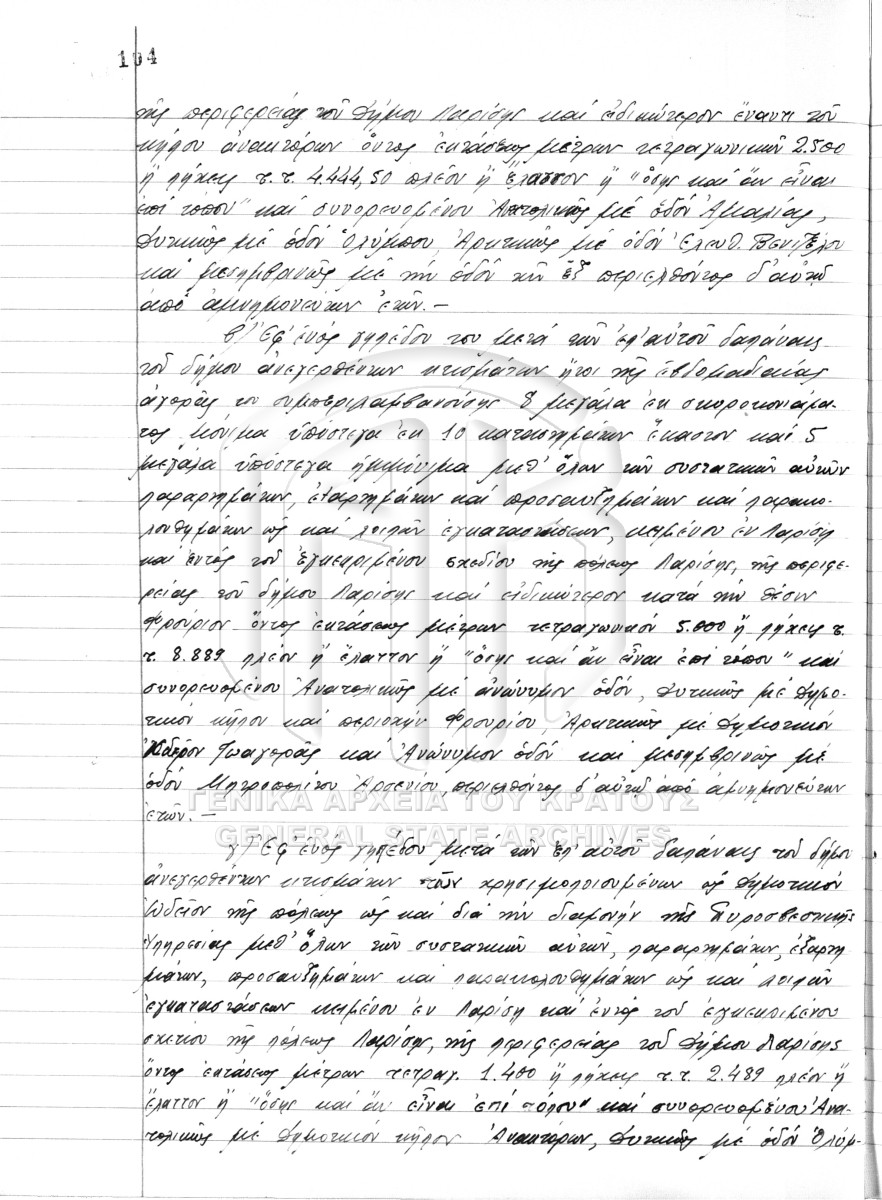 104
τῆς περιφερείας τοῦ Δήμου Λαρίσης καί εἰδικώτερον ἔναντι τοῦ
κήπου ἀνακτόρων ὄντος ἐκτάσεως μέτρων τετραγωνικῶν 2.500
ἤ πήχεις τ.τ. 4.444,50 πλέον ἤ ἔλαττον ἤ "ὅσης καί ἄν εἶναι
ἐπί τόπου" καί συνορευομένου Ἀνατολικῶς μέ ὁδόν Ἀμαλίας,
Δυτικῶς μέ ὁδόν Ὀλύμπου, Ἀρκτικῶς μέ ὁδόν Ἐλευθ. Βενιζέλου
καί μεσημβρινῶς μέ τήν ὁδόν τῶν ἕξ περιελθόντος δ' αὐτῷ
ἀπό ἀμνημονεύτων ἐτῶν.—
β) Ἐφ' ἑνός γηπέδου του μετά τῶν ἐπ' αὐτοῦ δαπάναις
τοῦ δήμου ἀνεγερθέντων κτισμάτων ἤτοι τῆς ἑβδομαδιαίας
ἀγορᾶς του συμπεριλαμβανούσης 8 μεγάλα ἐκ σκυροκονιάμα-
τος μόνιμα ὑπόστεγα ἐκ 10 καταστημάτων ἕκαστον καί 5
μεγάλα ὑπόστεγα ἡμιμόνιμα μεθ' ὅλων τῶν συστατικῶν αὐτῶν
παραρτημάτων, ἐξαρτημάτων καί προσαυξημάτων καί παρακο-
λουθημάτων ὡς καί λοιπῶν ἐγκαταστάσεων, κειμένου ἐν Λαρίσῃ
καί ἐντός τοῦ ἐγκεκριμένου σχεδίου τῆς πόλεως Λαρίσης, τῆς περιφε-
ρείας τοῦ δήμου Λαρίσης καί εἰδικώτερον κατά τήν θέσιν
Φρούριον ὄντος ἐκτάσεως μέτρων τετραγωνικῶν 5.000 ἤ πήχεις τ.
τ. 8.889 πλέον ἤ ἔλαττον ἤ "ὅσης καί ἄν εἶναι ἐπί τόπου" καί
συνορευομένου Ἀνατολικῶς μέ ἀνώνυμον ὁδόν, Δυτικῶς μέ Δημο-
τικόν κῆπον καί περιοχήν Φρουρίου, Ἀρκτικῶς μέ Δημοτικόν
Τσαγορᾶς καί Ἀνώνυμον ὁδόν καί μεσημβρινῶς μέ
ὁδόν Μητροπολίτου Ἀρσενίου, περιελθόντος δ' αὐτῷ ἀπό ἀμνημονεύτων
ἐτῶν.—
γ) Ἐφ' ἑνός γηπέδου μετά τῶν ἐπ' αὐτοῦ δαπάναις τοῦ δήμου
ἀνεγερθέντων κτισμάτων τῶν χρησιμοποιουμένων ὡς Δημοτικόν
Ὠδεῖον τῆς πόλεως ὡς καί διά τήν διαμονήν τῆς Πυροσβεστικῆς
Ὑπηρεσίας μεθ' ὅλων τῶν συστατικῶν αὐτῶν, παραρτημάτων, ἐξαρτη
μάτων, προσαυξημάτων καί παρακολουθημάτων ὡς καί λοιπῶν
ἐγκαταστάσεων κειμένου ἐν Λαρίσῃ καί ἐντός τοῦ ἐγκεκριμένου
σχεδίου τῆς πόλεως Λαρίσης, τῆς περιφερείας τοῦ Δήμου Λαρίσης
ὄντος ἐκτάσεως μέτρων τετραγ. 1.400 ἤ πήχεις τ.τ. 2.489 πλέον ἤ
ἔλαττον ἤ "ὅσης καί ἄν εἶναι ἐπί τόπου" καί συνορευομένου Ἀνα-
τολικῶς μέ Δημοτικόν κῆπον Ἀνακτόρων, Δυτικῶς μέ ὁδόν Ὀλύμ-
ΓΕΝΙΚΑ ΑΡΧΕΙΑ ΤΟΥ ΚΡΑΤΟΥΣ
GENERAL STATE ARCHIVES